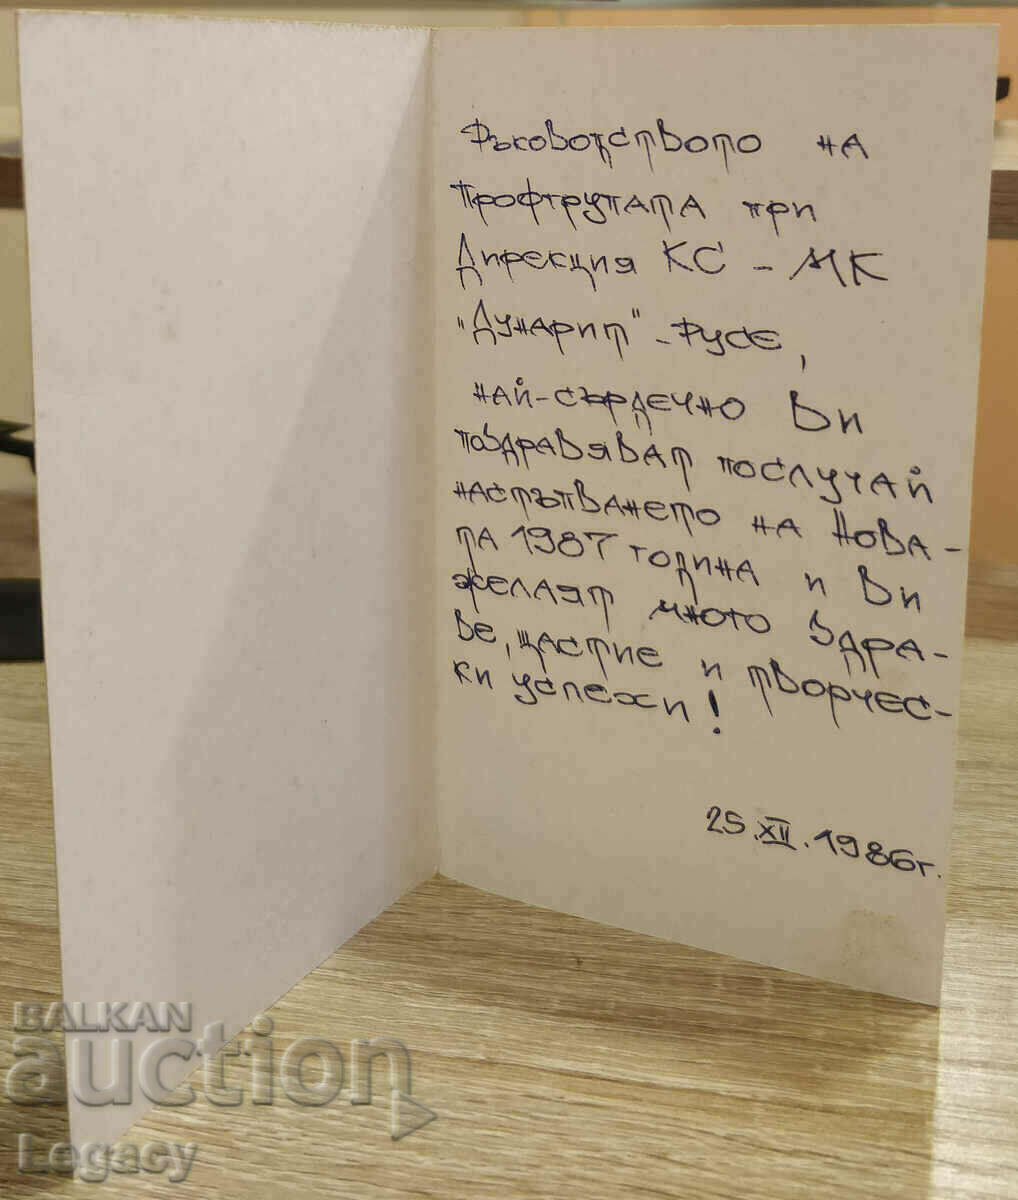 Ръководството на
профгрупата при
Дирекция КС - МК
"Дунарит" - Русе,
най-сърдечно Ви
поздравяват по случай
настъпването на Нова-
та 1987 година и Ви
желаят много здра-
ве, щастие и творчес-
ки успехи!
25.XII.1986г.
BALKAN
auction
Legacy